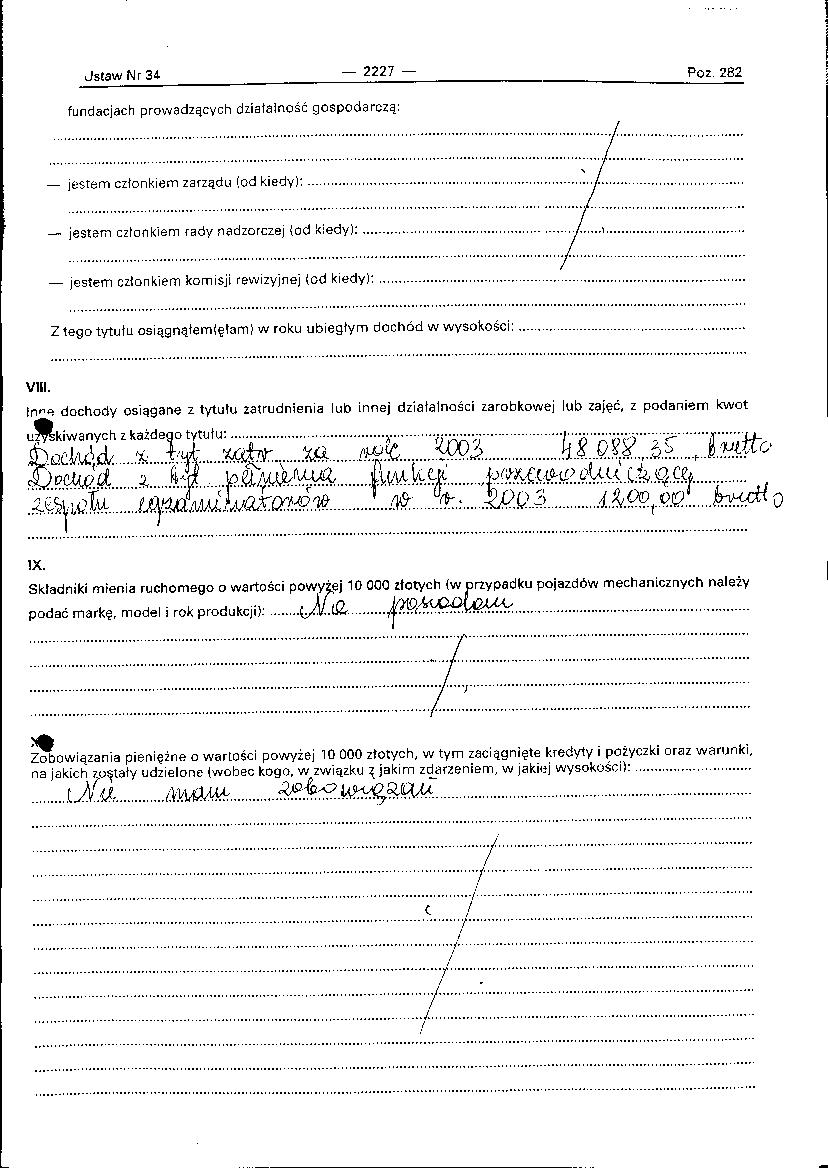 Ustaw Nr 34 — 2227 — Poz. 282
fundacjach prowadzących działalność gospodarczą:
— jestem członkiem zarządu (od kiedy):
— jestem członkiem rady nadzorczej (od kiedy):
— jestem członkiem komisji rewizyjnej (od kiedy):
Z tego tytułu osiągnąłem(ęłam) w roku ubiegłym dochód w wysokości:
VIII.
Inne dochody osiągane z tytułu zatrudnienia lub innej działalności zarobkowej lub zajęć, z podaniem kwot
uzyskiwanych z każdego tytułu:
Dochód z tyt zatr za rok 2003 48 088 35 brutto
Dochód z tyt pełnienia funkcji przewodniczącej
zespołu egzaminatorów w r. 2003 1200,00 brutto
IX.
Składniki mienia ruchomego o wartości powyżej 10 000 złotych (w przypadku pojazdów mechanicznych należy
podać markę, model i rok produkcji): Nie posiadam
X.
Zobowiązania pieniężne o wartości powyżej 10 000 złotych, w tym zaciągnięte kredyty i pożyczki oraz warunki,
na jakich zostały udzielone (wobec kogo, w związku z jakim zdarzeniem, w jakiej wysokości):
Nie mam zobowiązań